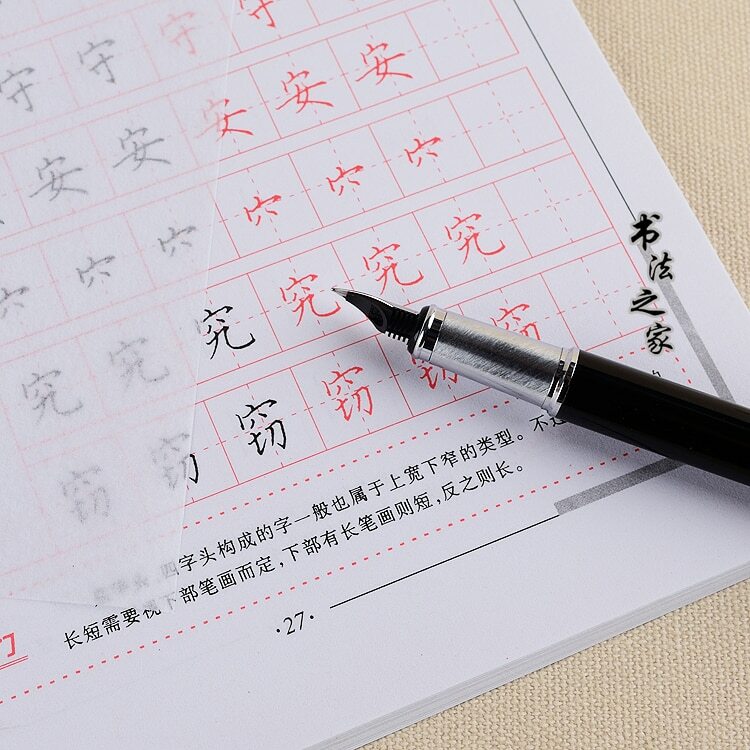 守 守 守 守
安 安 安 安 安
穴 穴 穴 穴 穴 穴
究 究 究 究 究 究
窃 窃 窃 窃 窃 窃
四字头构成的字一般也属于上宽下窄的类型。不
长短需要视下部笔画而定,下部有长笔画则短,反之则长。
·27·
书法之家